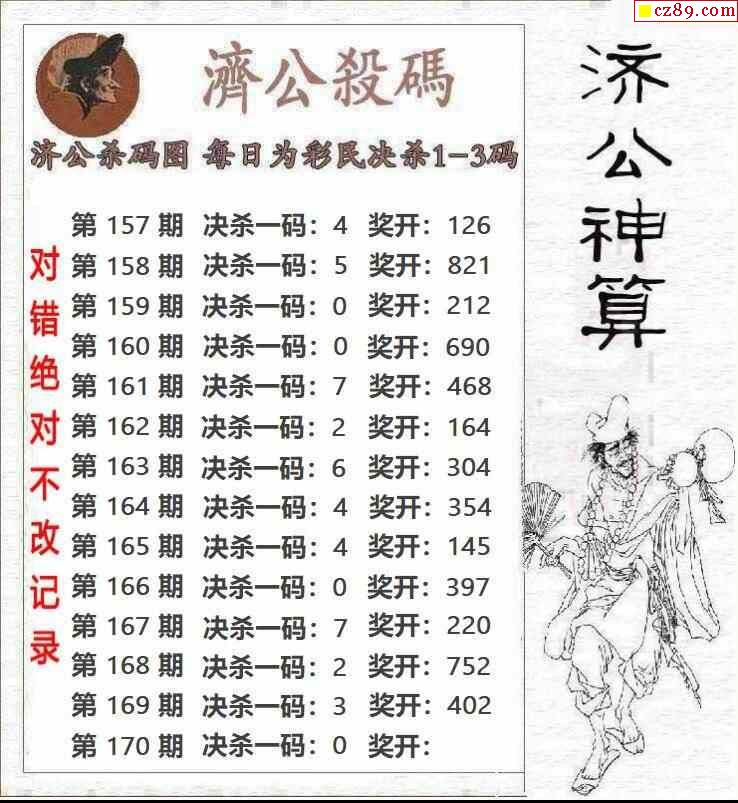 cz89.com
濟公殺碼
济公杀码图 每日为彩民决杀1-3码
第 157 期 决杀一码：4 奖开：126
第 158 期 决杀一码：5 奖开：821
第 159 期 决杀一码：0 奖开：212
第 160 期 决杀一码：0 奖开：690
第 161 期 决杀一码：7 奖开：468
第 162 期 决杀一码：2 奖开：164
第 163 期 决杀一码：6 奖开：304
第 164 期 决杀一码：4 奖开：354
第 165 期 决杀一码：4 奖开：145
第 166 期 决杀一码：0 奖开：397
第 167 期 决杀一码：7 奖开：220
第 168 期 决杀一码：2 奖开：752
第 169 期 决杀一码：3 奖开：402
第 170 期 决杀一码：0 奖开：
对错绝对不改记录
济公神算